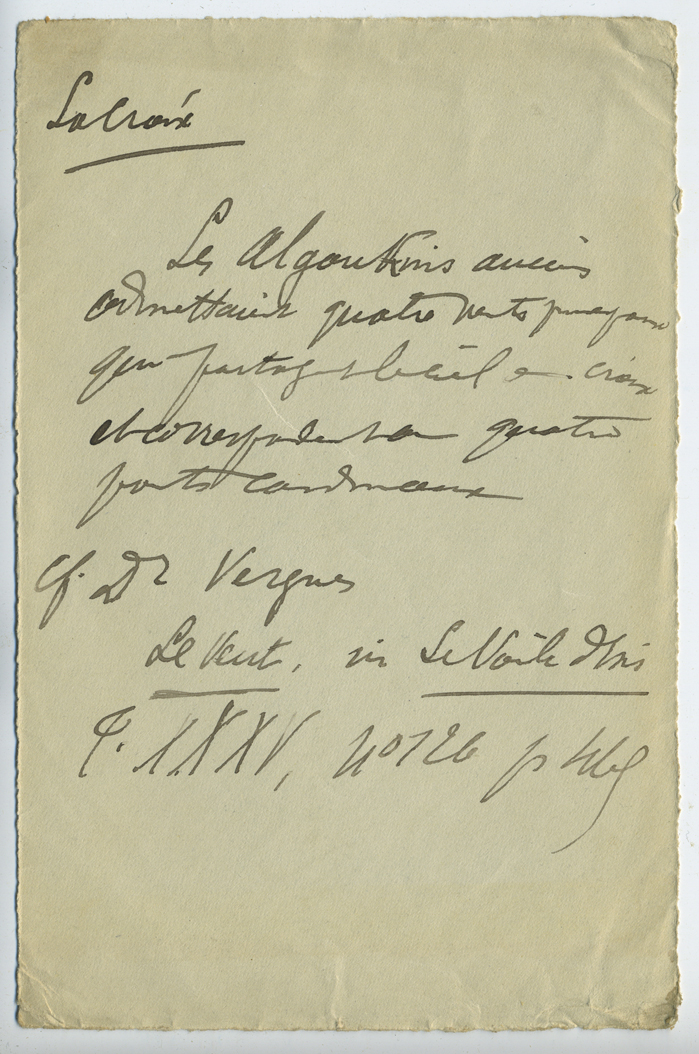 La Croix
Les Algonkins anciens
admettaient quatre vents principaux
qui partagent le ciel en croix
et correspondent aux quatre
points cardinaux
cf. Dr Vergnes
Le Vent, in Le Voile d'Isis
T. XXXV, no 126 p 469